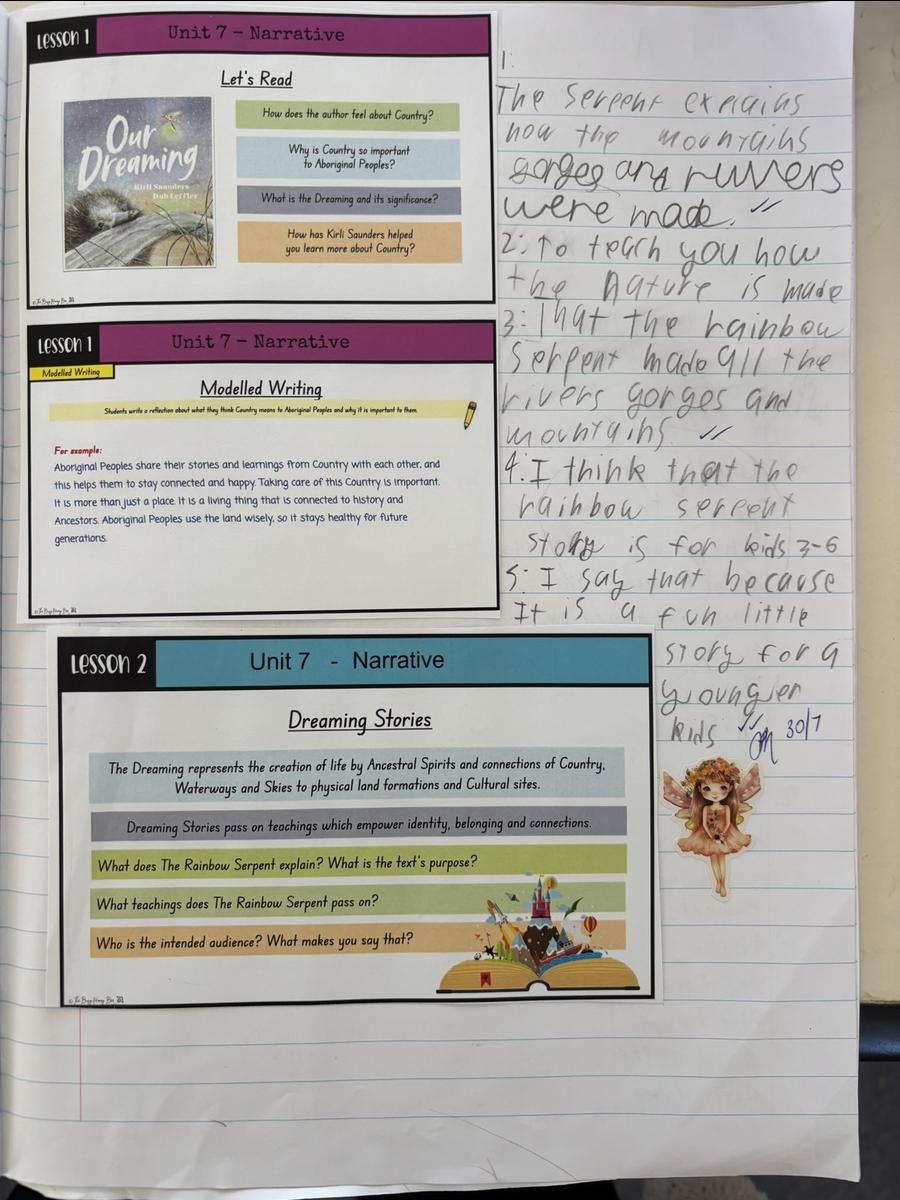 Lesson 1
Unit 7 – Narrative
Let's Read
Our
Dreaming
Kirli Saunders
Dub Leffler
How does the author feel about Country?
Why is Country so important
to Aboriginal Peoples?
What is the Dreaming and its significance?
How has Kirli Saunders helped
you learn more about Country?
Lesson 1
Unit 7 – Narrative
Modelled Writing
Modelled Writing
Students write a reflection about what they think Country means to Aboriginal Peoples and why it is important to them.
For example:
Aboriginal Peoples share their stories and learnings from Country with each other, and
this helps them to stay connected and happy. Taking care of this Country is important.
It is more than just a place. It is a living thing that is connected to history and
Ancestors. Aboriginal Peoples use the land wisely, so it stays healthy for future
generations.
Lesson 2
Unit 7 - Narrative
Dreaming Stories
The Dreaming represents the creation of life by Ancestral Spirits and connections of Country,
Waterways and Skies to physical land formations and Cultural sites.
Dreaming Stories pass on teachings which empower identity, belonging and connections.
What does The Rainbow Serpent explain? What is the text's purpose?
What teachings does The Rainbow Serpent pass on?
Who is the intended audience? What makes you say that?
1:
The Serpent explains
how the mountains
gorges and ruvers
were made.
2: To teach you how
the nature is made
3: That the rainbow
serpent made all the
rivers gorges and
mountains.
4. I think that the
rainbow serpent
story is for kids 3-6
5: I say that because
It is a fun little
story for a
youngier
kids
30/7